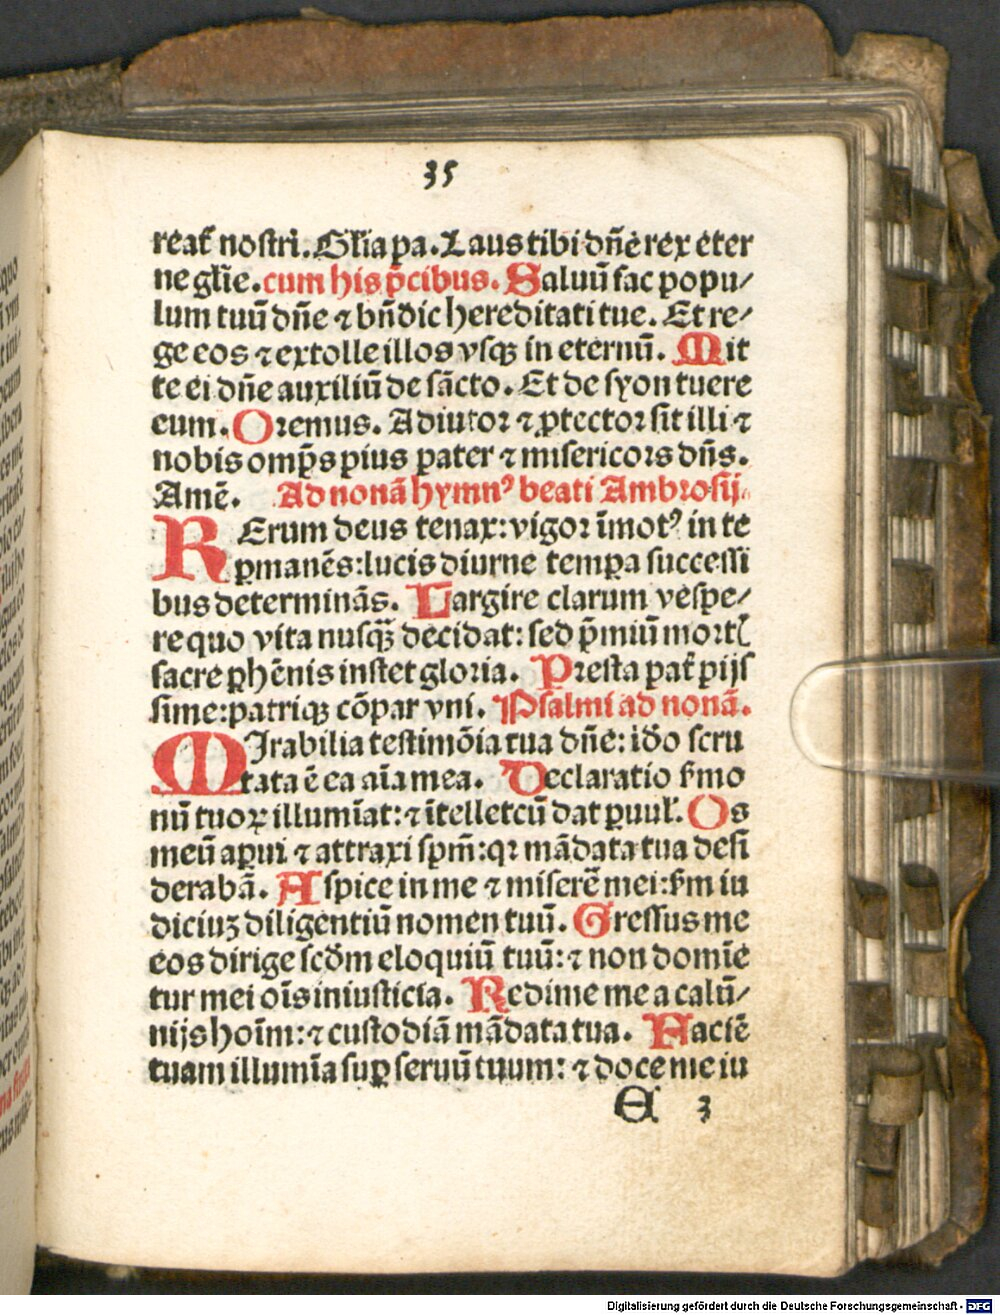 35
reat᷑ nostri. Gl̄ia pa. Laus tibi dn̄e rex eter
ne gl̄ie. cum his p̄cibus. Saluū fac popu/
lum tuū dn̄e ⁊ bn̄dic hereditati tue. Et re/
ge eos ⁊ extolle illos vsqꝫ in eternū. Mit
te ei dn̄e auxiliū de sācto. Et de syon tuere
eum. Oremus. Adiutor ⁊ ꝓtector sit illi ⁊
nobis omp̄s pius pater ⁊ misericors dn̄s.
Amē. Ad nonā hymnꝰ beati Ambrosij.
RErum deus tenax: vigor īmotꝰ in te
ꝑmanēs: lucis diurne tempa successi
bus determinās. Largire clarum vespe/
re quo vita nusqꝫ̄ decidat: sed p̄miū mortꝭ
sacre ꝑhēnis instet gloria. Presta pat᷑ pijs
sime: patriqꝫ cōpar vni. Psalmi ad nonā.
MIrabilia testimōia tua dn̄e: iđo scru
tata ē ea aīa mea. Declaratio ẜmo
nū tuoꝝ illumīat: ⁊ ītelletcū dat ꝑuul̓. Os
meū aperui ⁊ attraxi spm̄: qꝛ mādata tua desi
derabā. Aspice in me ⁊ miserē mei: ẜm iu
diciuꝫ diligentiū nomen tuū. Gressus me
eos dirige scđm eloquiū tuū: ⁊ non domīe
tur mei oīs iniusticia. Redime me a calū/
nijs hoīm: ⁊ custodiā mādata tua. Faciē
tuam illumīa suꝑ seruū tuum: ⁊ doce me iu
E 3
Digitalisierung gefördert durch die Deutsche Forschungsgemeinschaft - DFG